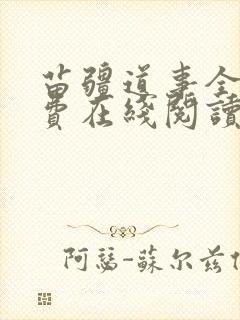 苗疆道事全
費在綫閱讀
阿瑟-蘇尔兹